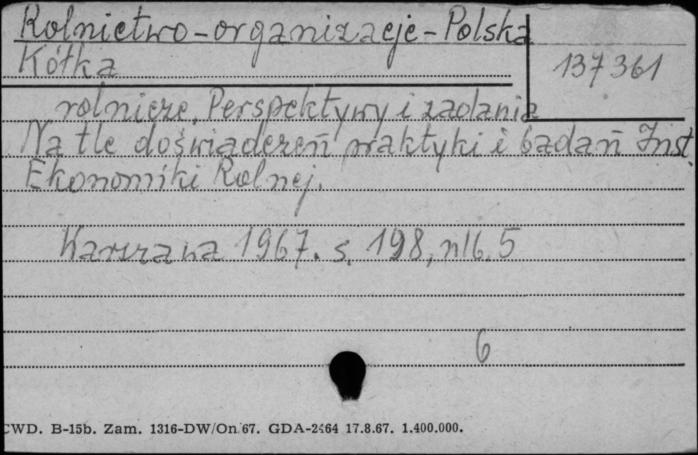 Rolnictwo-organizacje-Polska
Kółka
137361
rolnicze. Perspektywy i zadania
Na tle doświadczeń praktyki i badań Inst.
Ekonomiki Rolnej.
Warszawa 1967. s. 198, nlb. 5
6
CWD. B-15b. Zam. 1316-DW/On 67. GDA-2464 17.8.67. 1.400.000.